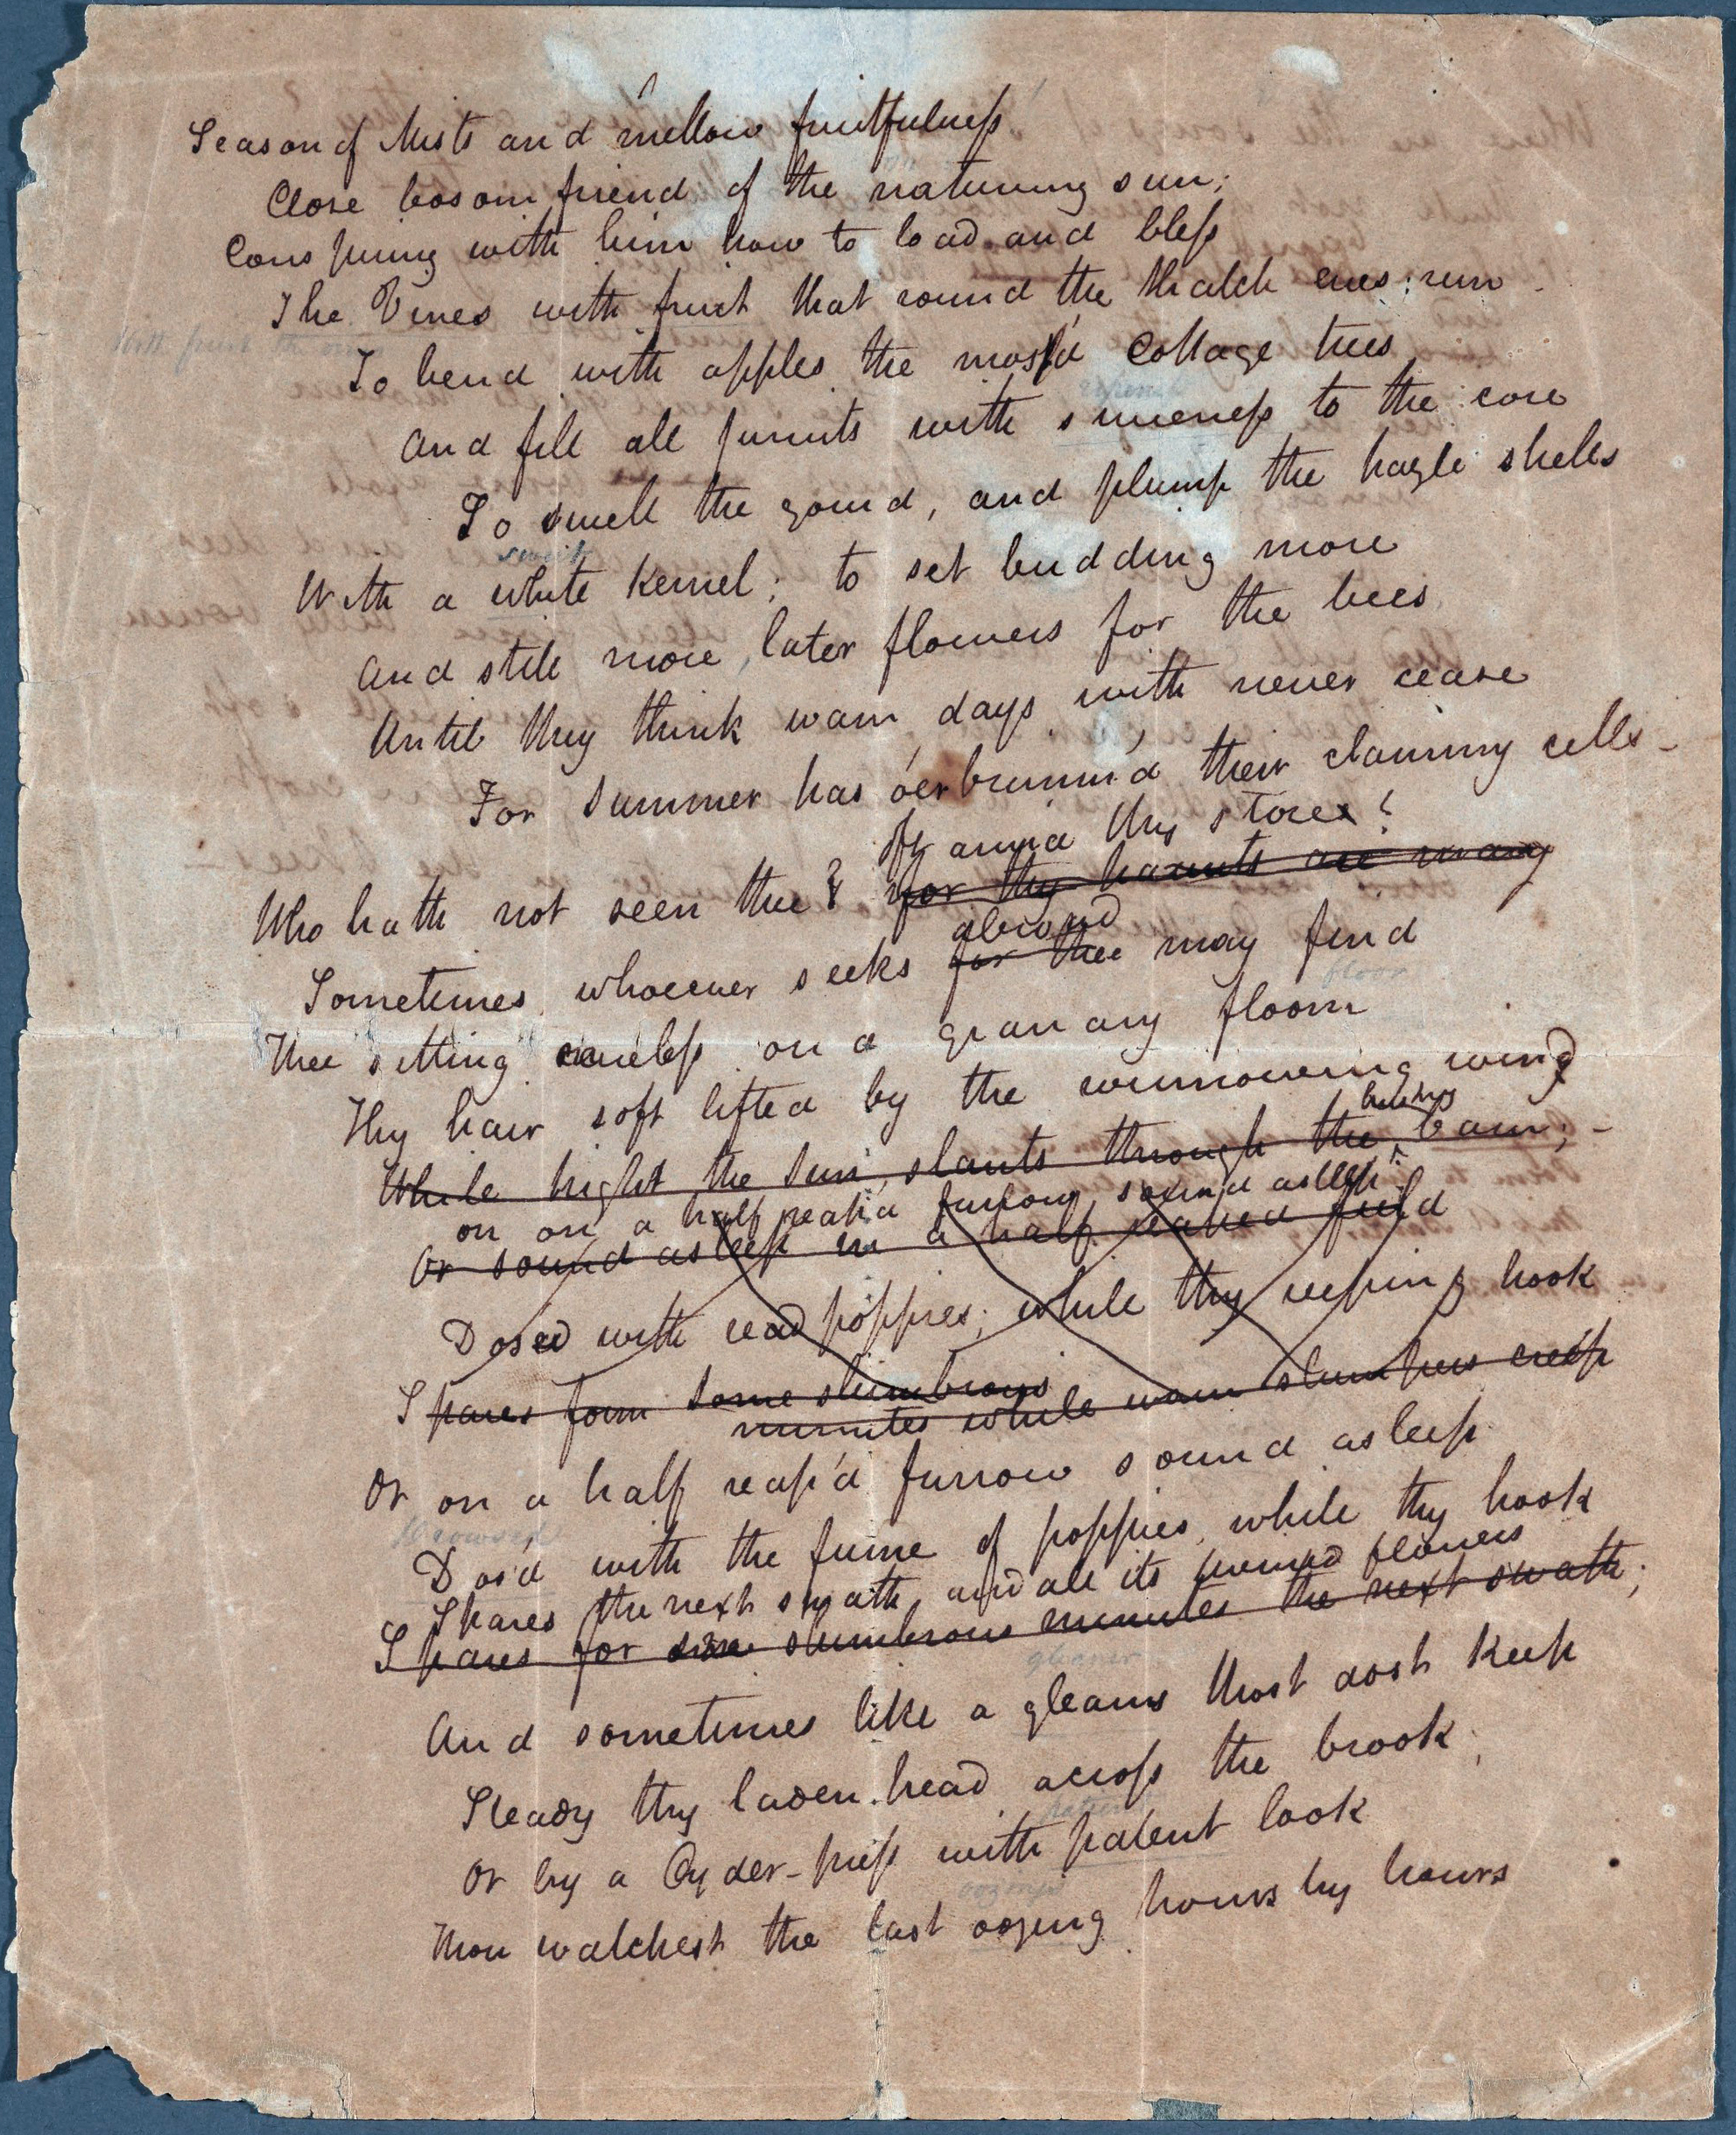 Season of Mists and mellow fruitfulness
Close bosom friend of the naturing sun;
Conspiring with him how to load and bless
The Vines with fruit that round the thatch eves run
To bend with apples the moss'd Cottage trees
And fill all furuits with sweeness to the core
To swell the gourd, and plump the hazle shells
sweet
With a white kernel; to set budding more
And still more later flowers for the bees
Until they think wam days with never cease
For Summer has o'erbrimm'd their clammy cells -
oft amid thy stores?
Who hath not seen thee? for thy haunts are many
abroad
Sometimes whoever seeks for thee may find
floor
Thee sitting careless on a granary floom
Thy hair soft lifted by the winnowing wind
husky
While bright the Sun slants through the barn; -
on on a half reap'd furrow sound asleep
Or sound asleep in a half reaped field
Dosed with read poppies; while thy reeping hook
Spares form some slumbrous
minutes while wam slumpers creep
Or on a half reap'd furrow sound asleep
Drowsed
Dos'd with the fume of poppies, while thy hook
Spares the next swath and all its twined flowers
Spares for some slumbrous minutes the next swath;
gleaner
And sometimes like a gleans thost dost keep
Steady thy laden head across the brook;
patient
Or by a Cyder-press with patent look
oozings
Thou watchest the last oozing hours by hours